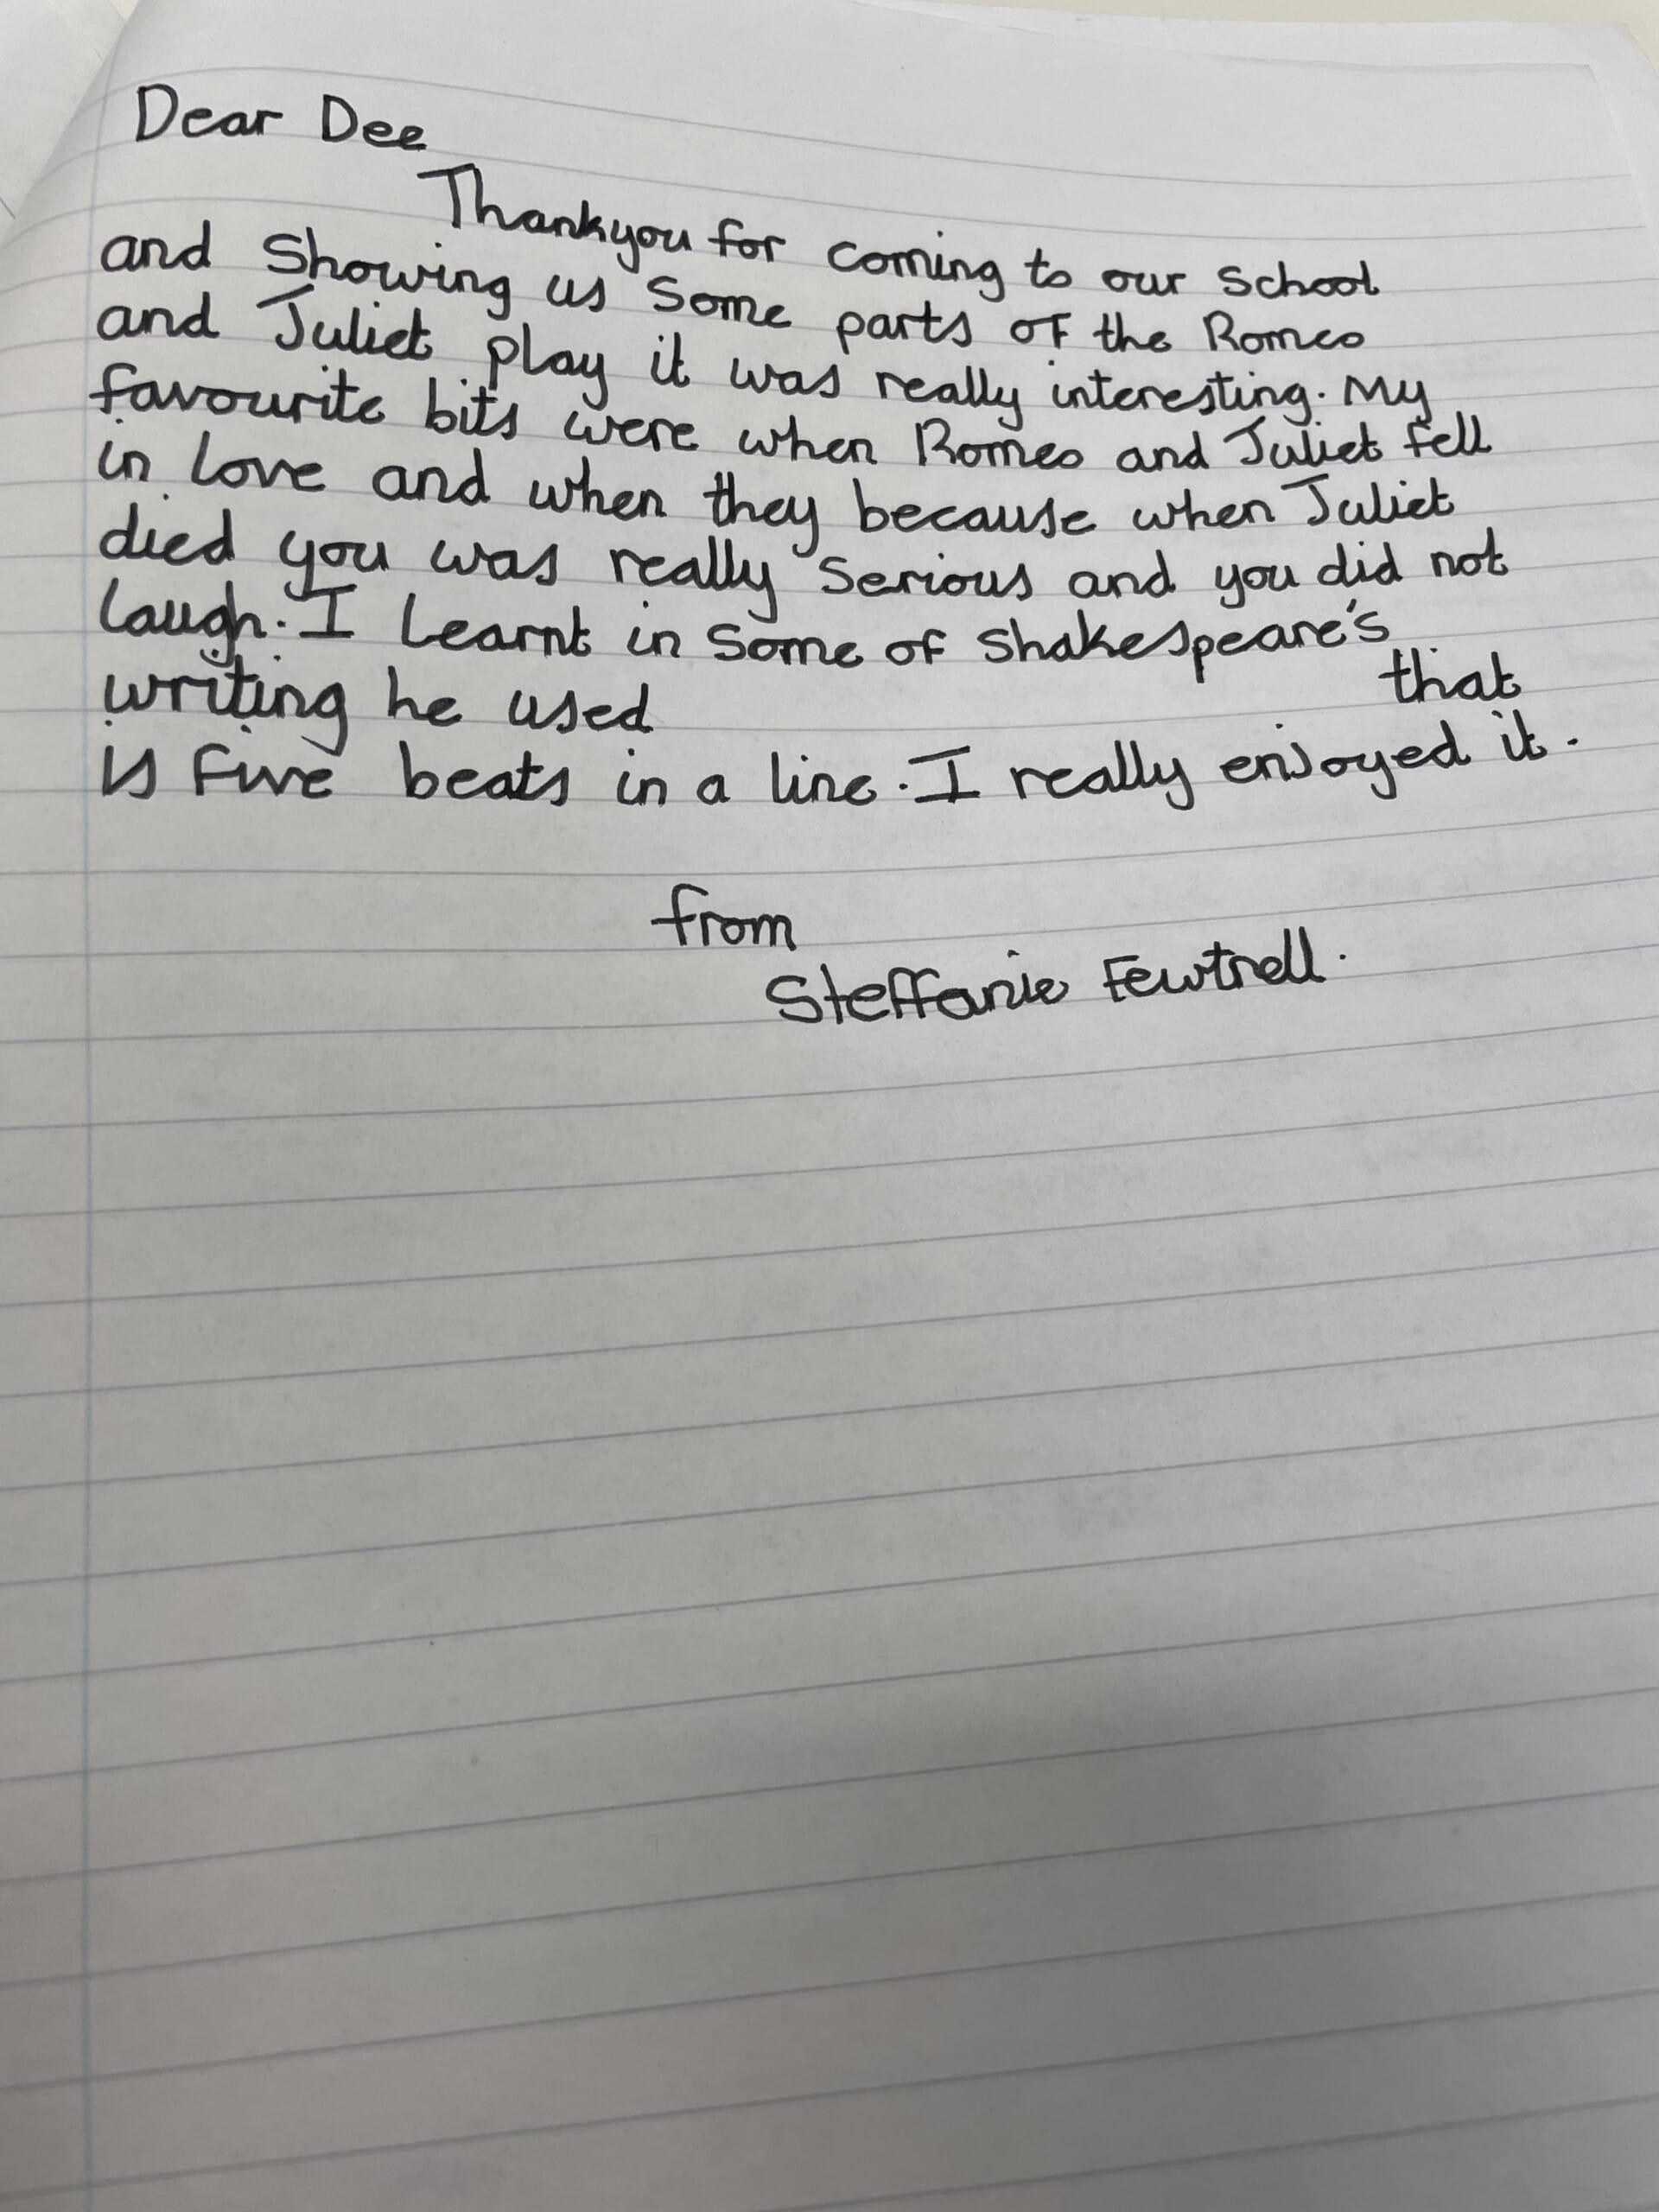 Dear Dee
Thankyou for coming to our school
and showing us some parts of the Romeo
and Juliet play it was really interesting. My
favourite bits were when Romeo and Juliet fell
in love and when they because when Juliet
died you was really serious and you did not
laugh. I learnt in some of Shakespeare's
writing he used that
is five beats in a line. I really enjoyed it.
from
Steffanie Fewtrell.